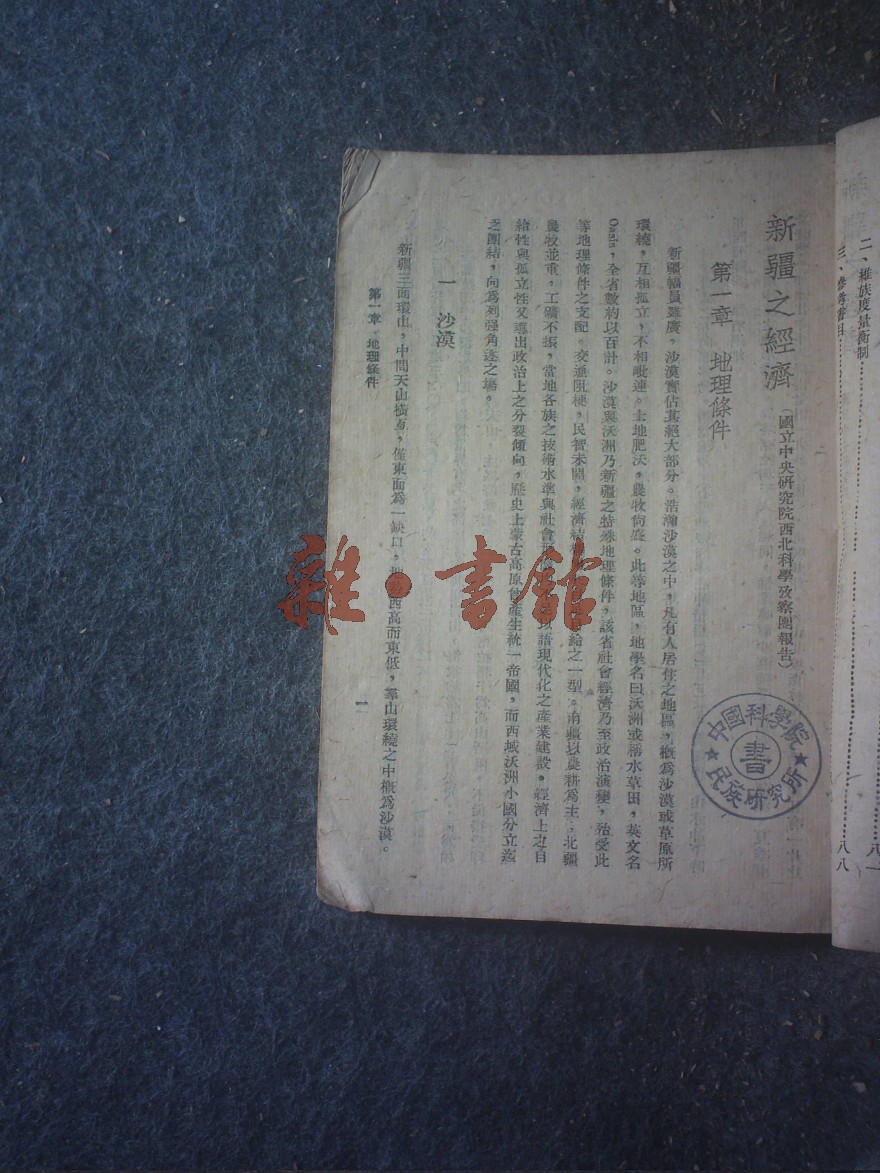 二、維族度量衡制……八一
三、參考書目……八八
新疆之經濟
(國立中央研究院西北科學攷察團報告)
第一章 地理條件
新疆幅員雖廣,沙漠實佔其絕大部分。浩瀚沙漠之中,凡有人居住之地區,概爲沙漠或草原所
環繞,互相孤立,不相毗連。土地肥沃,農牧尙盛。此等地區,地學名曰沃洲或稱水草田,英文名
Oasis,全省數約以百計。沙漠與沃洲乃新疆之特殊地理條件,該省社會經濟乃至政治演變,殆受此
等地理條件之支配。交通阻梗,民智未開,經濟結 給之一型。南疆以農耕爲主,北疆
農牧並重,工礦不振,當地各族之技術水準與社會 語現代化之產業建設。經濟上之自
給性與孤立性又導出政治上之分裂傾向,歷史上蒙古高原曾產生統一帝國,而西域沃洲小國分立迄
之團結,向爲列强角逐之場。
一 沙漠
新疆三面環山,中間天山橫亙,僅東面爲一缺口,地勢西高而東低,羣山環繞之中概爲沙漠。
第一章 地理條件
一
中國科學院
書
民族研究所
雜·書館